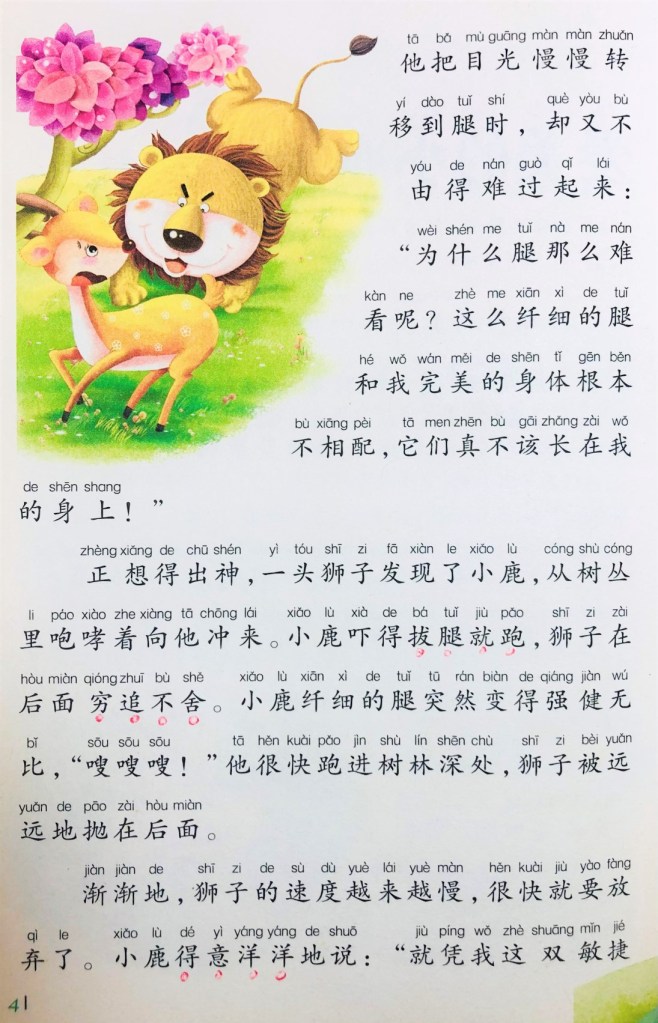 tā bǎ mù guāng màn màn zhuǎn
他把目光慢慢转
yí dào tuǐ shí què yòu bù
移到腿时，却又不
yóu de nán guò qǐ lái
由得难过起来：
wèi shén me tuǐ nà me nán
“为什么腿那么难
kàn ne zhè me xiān xì de tuǐ
看呢？这么纤细的腿
hé wǒ wán měi de shēn tǐ gēn běn
和我完美的身体根本
bù xiāng pèi tā men zhēn bù gāi zhǎng zài wǒ
不相配，它们真不该长在我
de shēn shang
的身上！”
zhèng xiǎng de chū shén yì tóu shī zi fā xiàn le xiǎo lù cóng shù cóng
正想得出神，一头狮子发现了小鹿，从树丛
li páo xiào zhe xiàng tā chōng lái xiǎo lù xià de bá tuǐ jiù pǎo shī zi zài
里咆哮着向他冲来。小鹿吓得拔腿就跑，狮子在
hòu miàn qióng zhuī bù shě xiǎo lù xiān xì de tuǐ tū rán biàn de qiáng jiàn wú
后面穷追不舍。小鹿纤细的腿突然变得强健无
bǐ sōu sōu sōu tā hěn kuài pǎo jìn shù lín shēn chù shī zi bèi yuǎn
比，“嗖嗖嗖！”他很快跑进树林深处，狮子被远
yuǎn de pāo zài hòu miàn
远地抛在后面。
jiàn jiàn de shī zi de sù dù yuè lái yuè màn hěn kuài jiù yào fàng
渐渐地，狮子的速度越来越慢，很快就要放
qì le xiǎo lù dé yì yáng yáng de shuō jiù píng wǒ zhè shuāng mǐn jié
弃了。小鹿得意洋洋地说：“就凭我这双敏捷
41